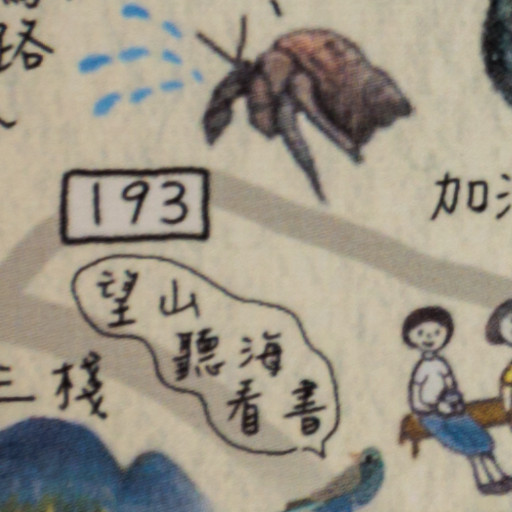 路
193
加
望山
聽海
看書
三棧